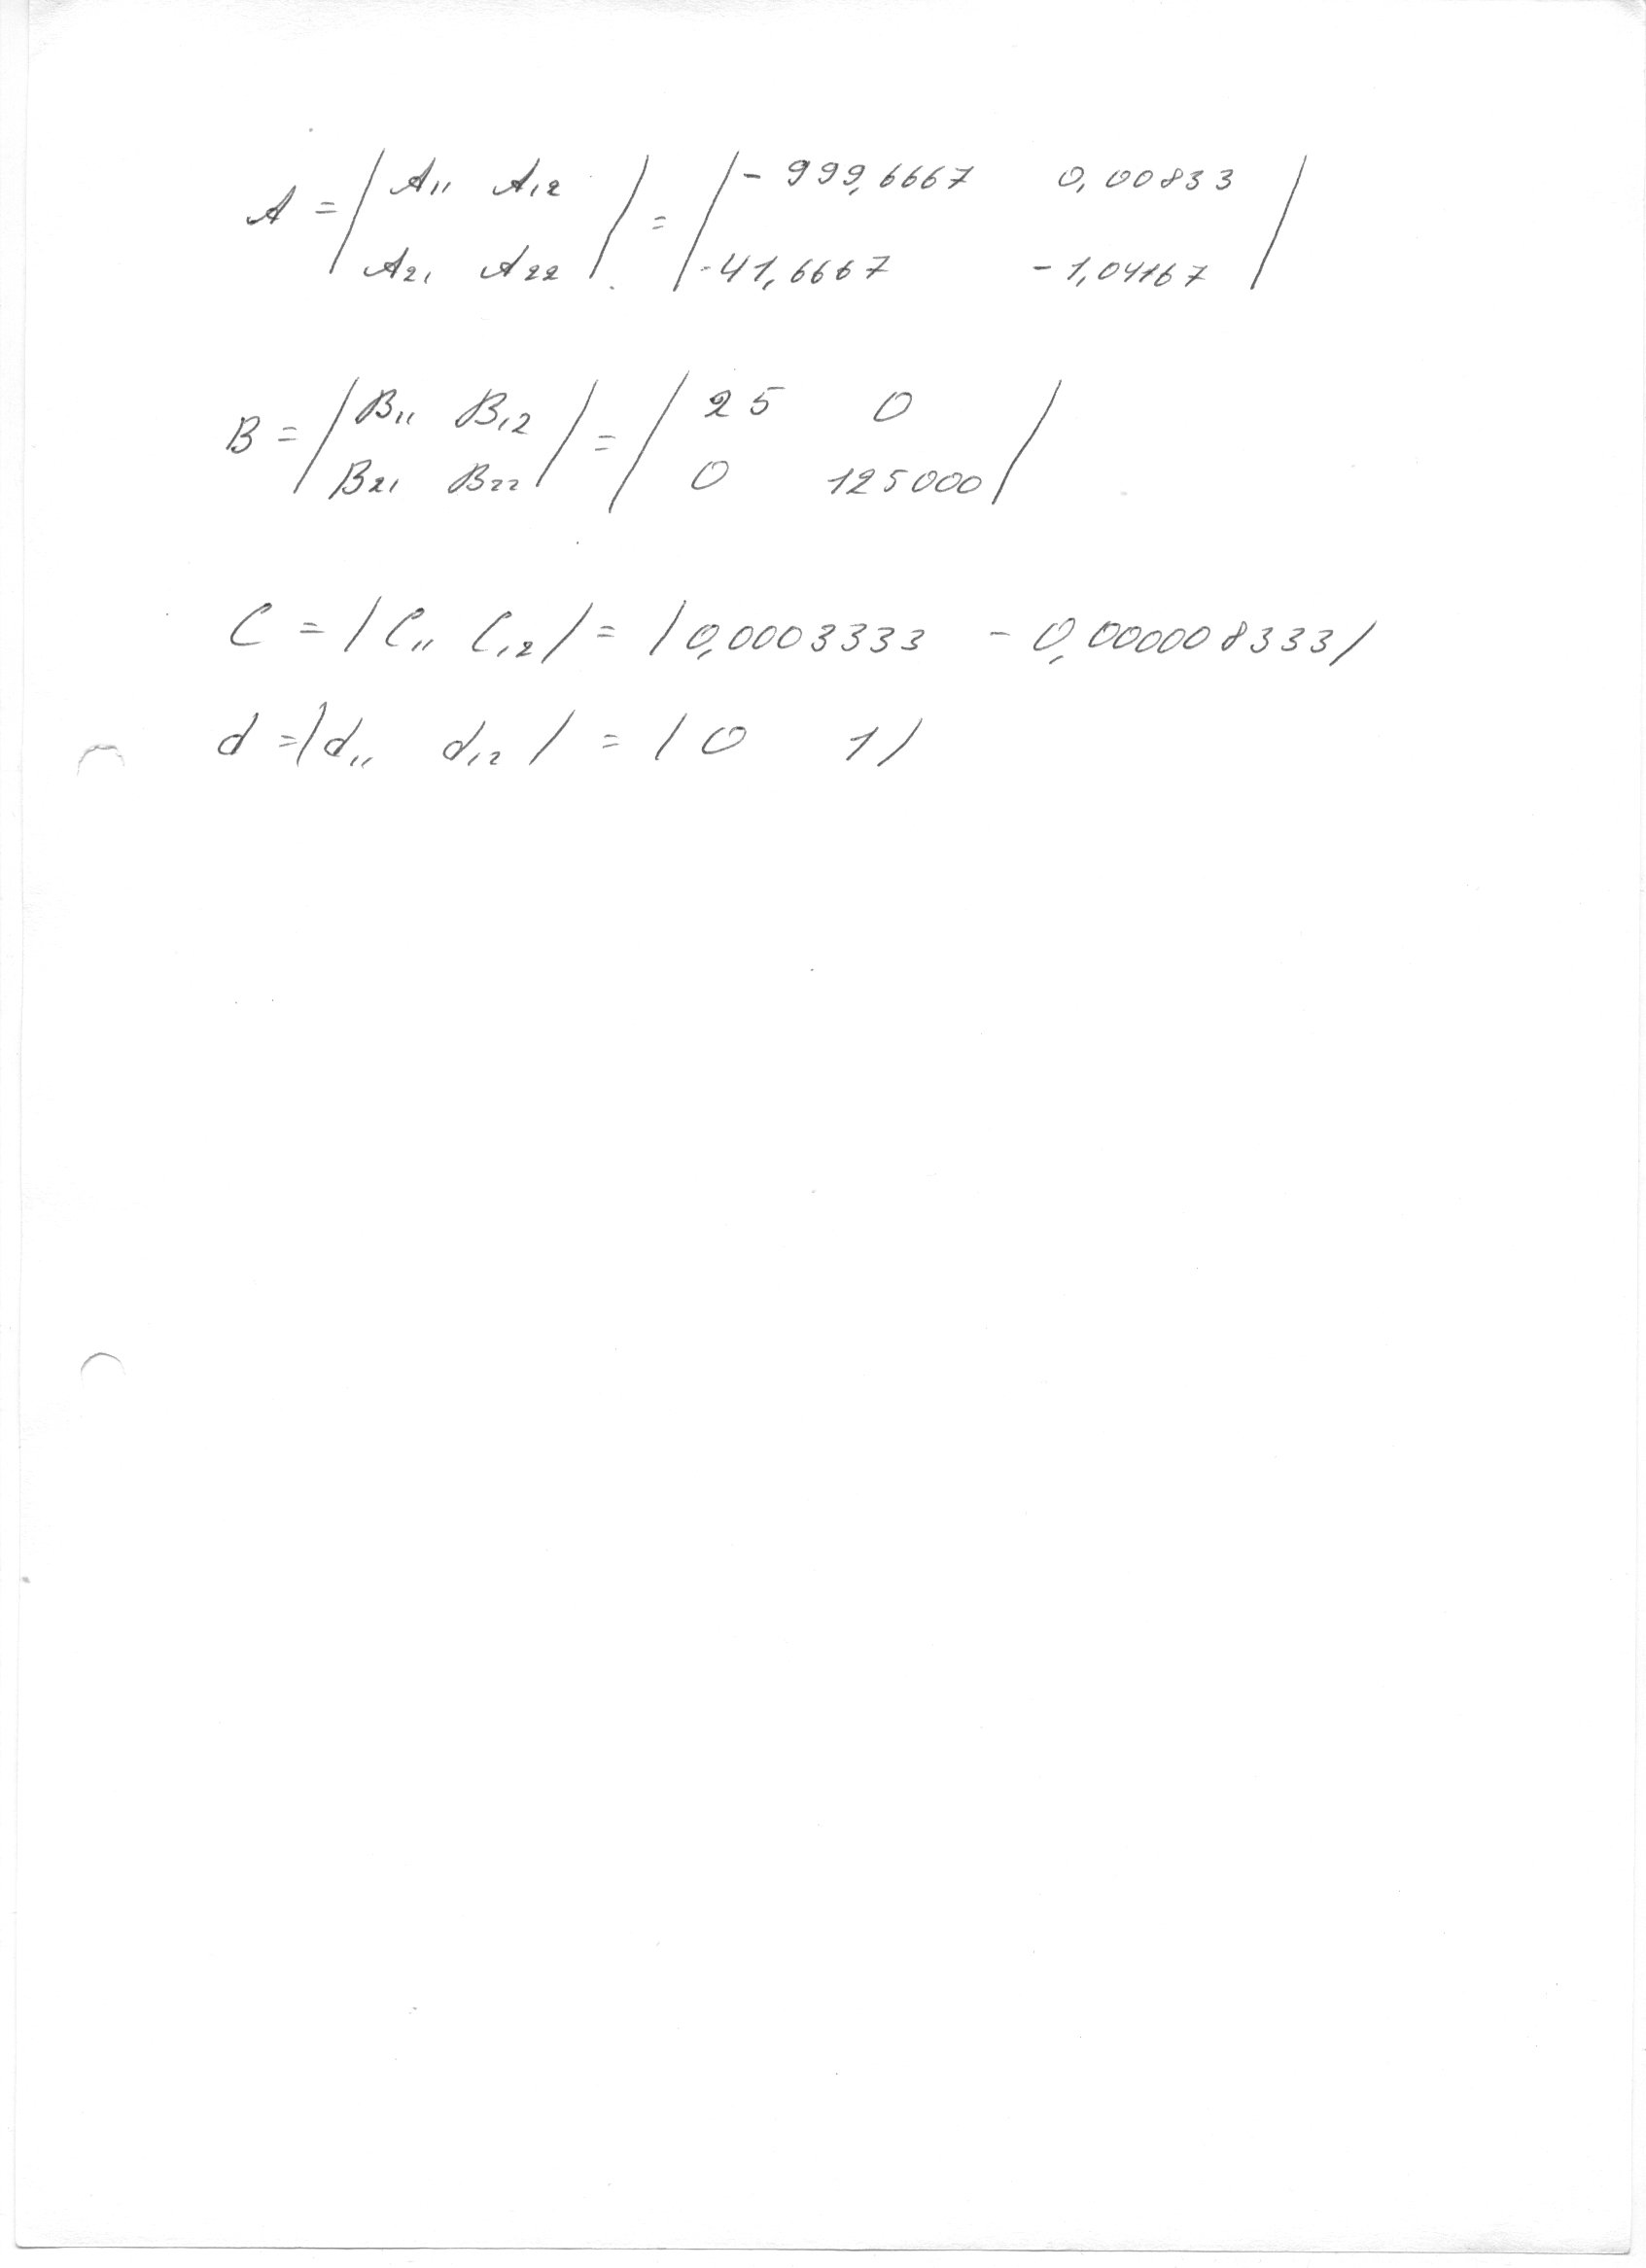 A = | A11 A12 | = | - 999,6667 0,00833 |
| A21 A22 | | -41,6667 - 1,04167 |
B = | B11 B12 | = | 25 0 |
| B21 B22 | | 0 125000 |
C = | C11 C12 | = | 0,0003333 - 0,000008333 |
d = | d11 d12 | = | 0 1 |